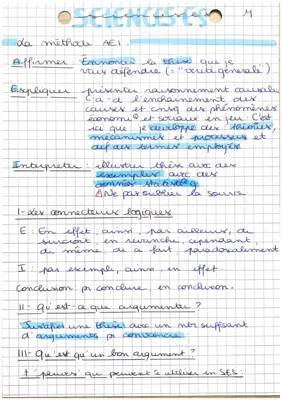 SCIENCES ES
La méthode AEI
Affirmer: Ennoncer la thèse que je
vais défendre (= "vérité générale")
Expliquer présenter raisonnement causale
c-à-d l'enchainement des
causes et cnsq des phénomènes
économiq et sociaux en jeu. C'est
ici que je développe des théories,
mécanismes et processus et
def des termes employés
Interpreter: illustrer thèse avec des
exemples avec des
données statistq
⚠Ne pas oublier la source
I- Les connecteurs logiques
E: En effet, ainsi, par ailleurs, de
surcroît, en revanche, cependant,
de même, de ce fait, paradoxalement
I: par exemple, ainsi, en effet
Conclusion: pr conclure, en conclusion.
II- Qu'est-ce que argumenter?
Justifier une thèse avec un nbr suffisant
d'arguments pr convaincre
III- Qu'est qu'un bon argument?
"preuves" qui peuvent utiliser en SES: